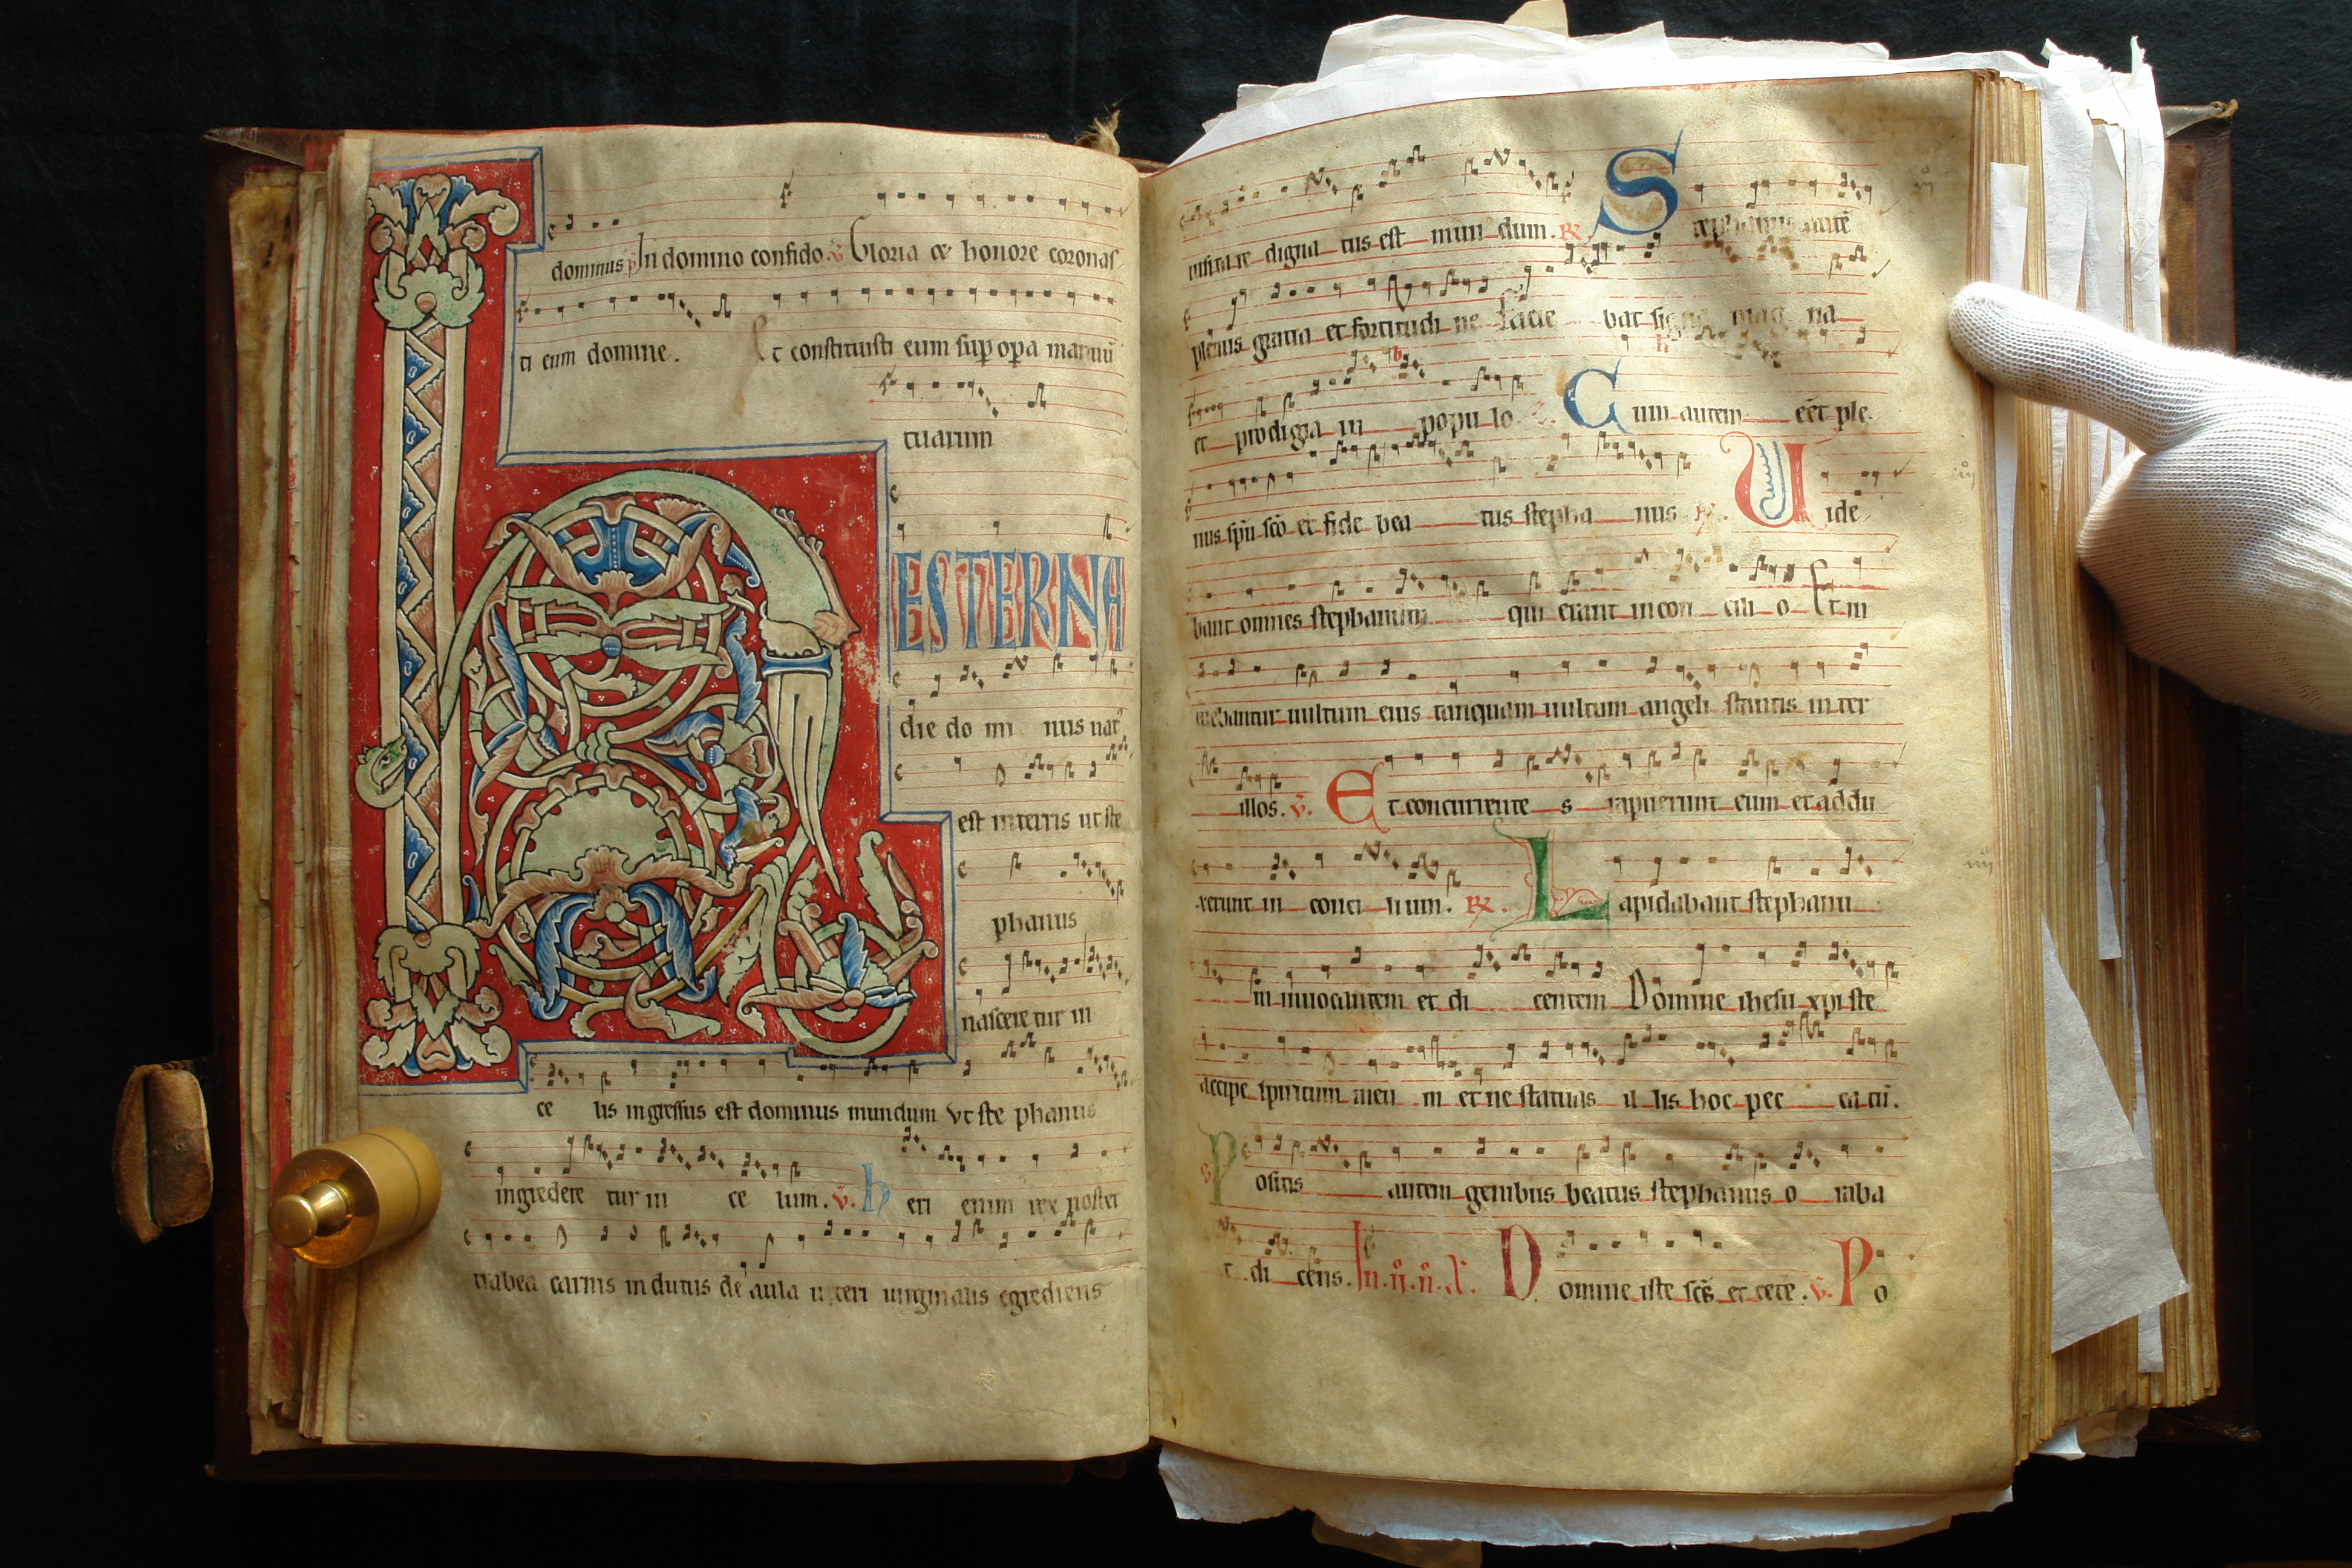 dominus p̄ In domino confido. v̄ Gloria et honore coronas
ti eum domine. Et constituisti eum sup̄ op̄a manuū
tuarum
HESTERNA
die do mi nus nat᷒
est in terris ut ste
phanus
nascere tur in
ce lis ingressus est dominus mundum vt ste phanus
ingredere tur in ce lum. v̄. heri enim rex noster
trabea carnis in dutus de aula uteri uirginalis egrediens
uisita re digna tus est mun dum. ℞. S tephanus autē
plenus gratia et fortitudi ne facie bat signa mag na
et prodigia in popu lo. C um autem eēt ple
nus sp̄u sc̄o et fide bea tus stepha nus ℞. U ide
bant omnes stephanum qui erant in con cili o Et in
tuebantur uultum eius tanquam uultum angeli stantis in ter
illos. v̄. E t concurrente s rapuerunt eum et addu
xerunt in conci lium. ℞. L apidabant stephanū
in inuocantem et di centem Domine ihesu xp̄i ste
accipe spiritum meu m et ne statuas il lis hoc pec ca tū.
P ositis autem genibus beatus stephanus o raba
t di cens. In. ii̊. ii̊. A. D omine iste sc̄s et cete. v̄. P o